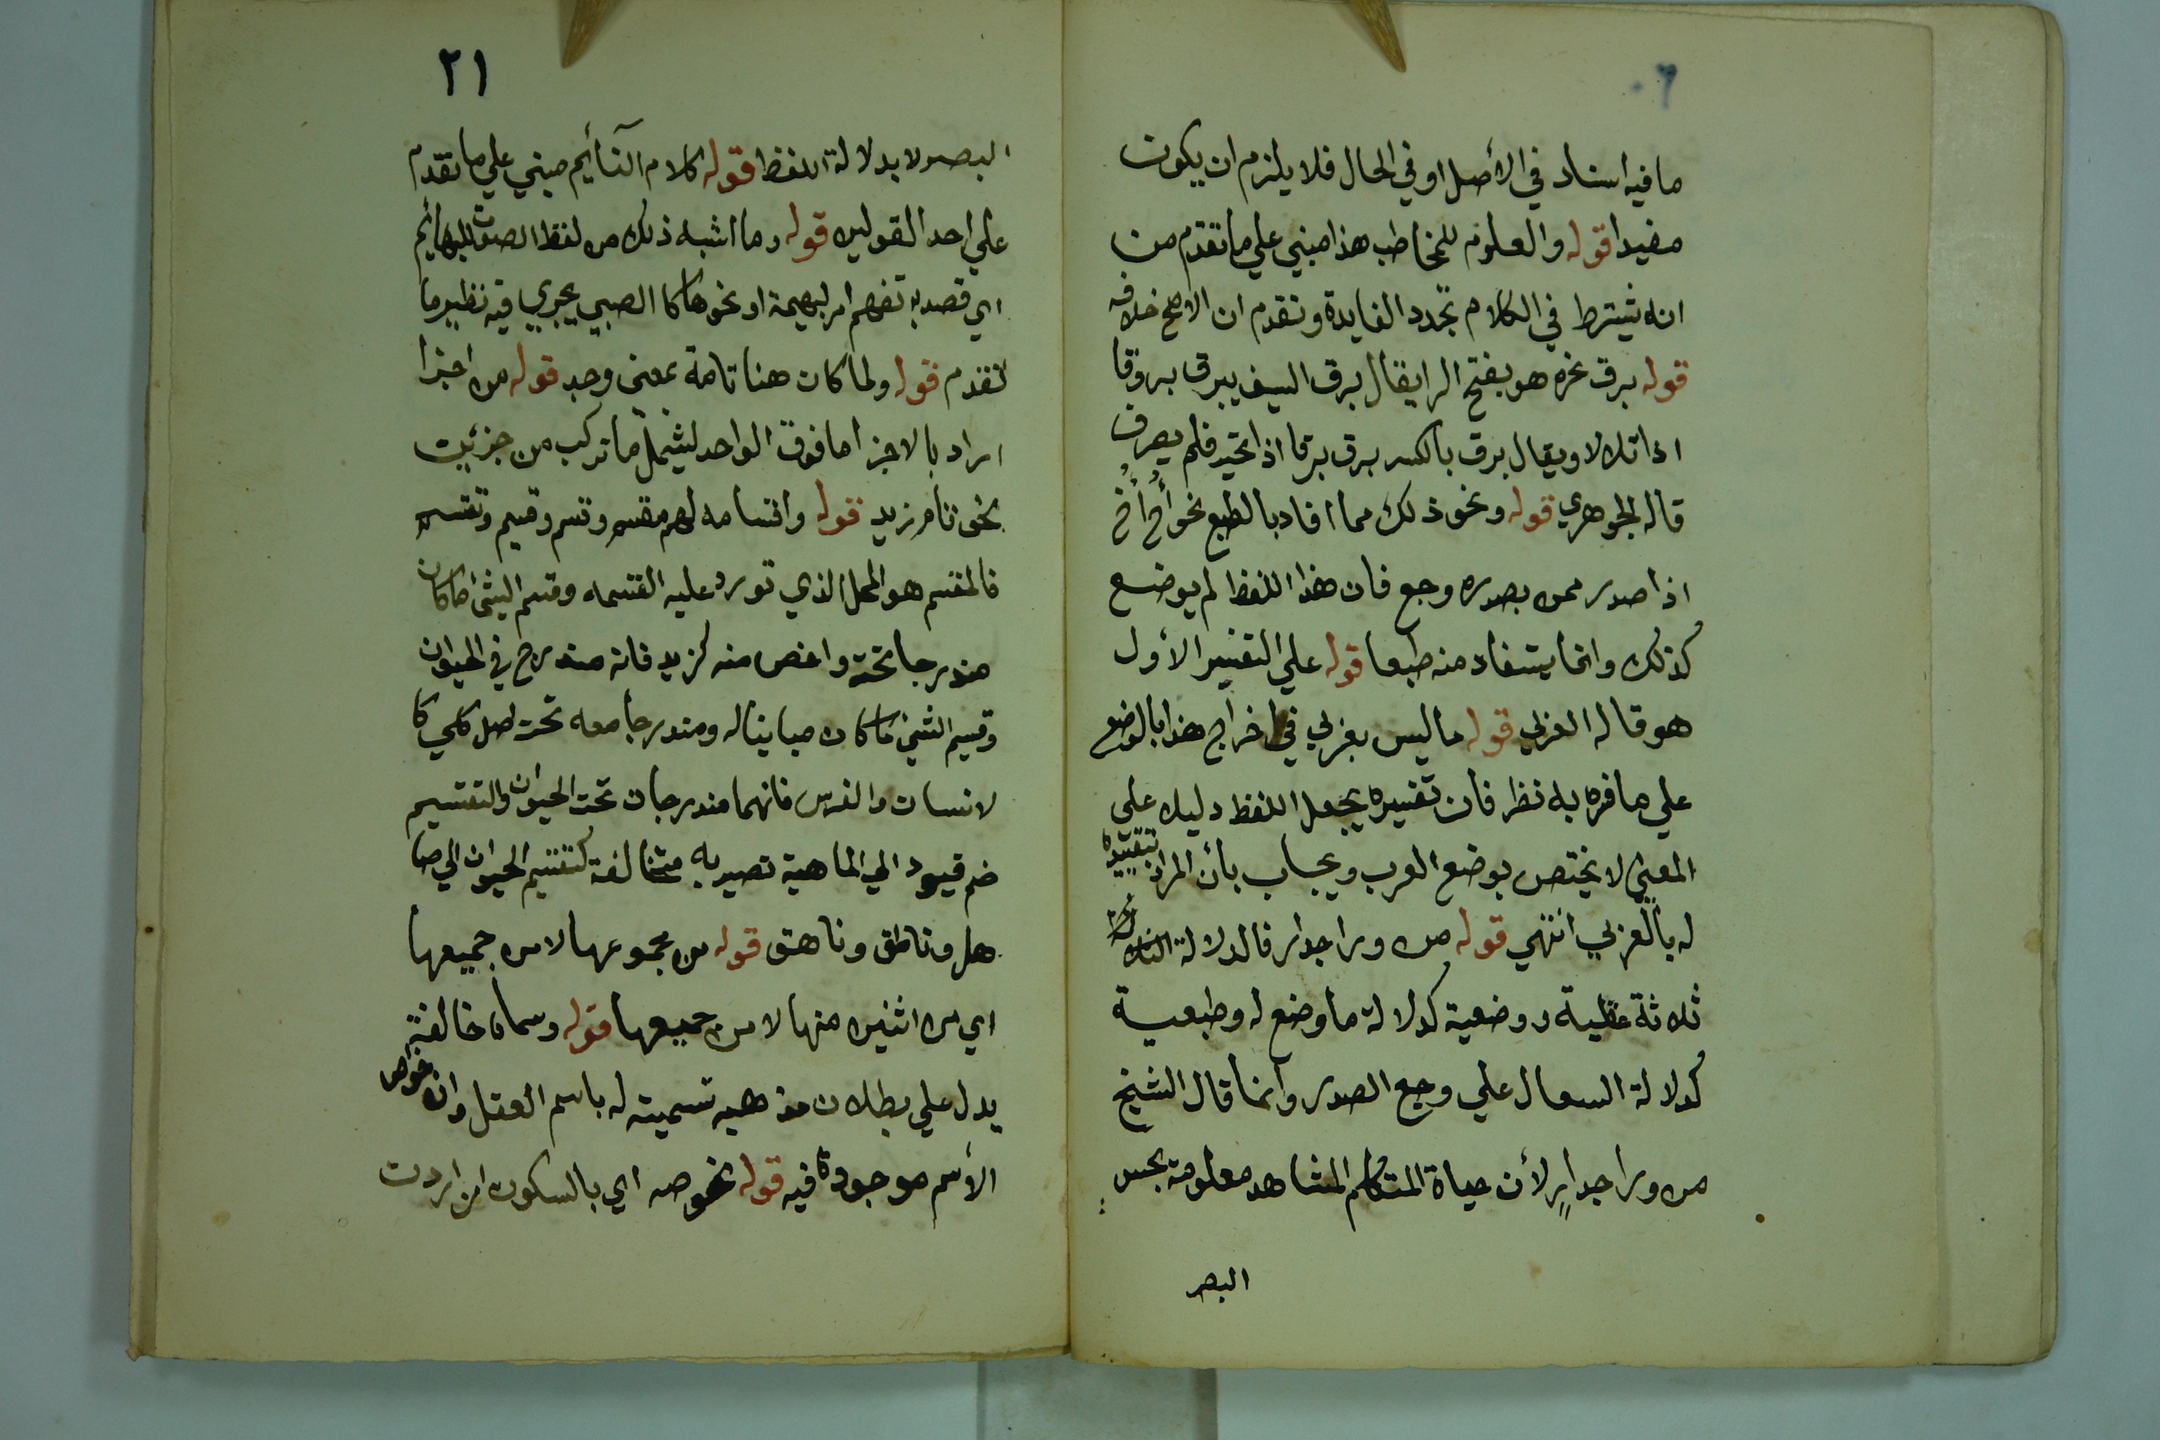 ما فيه اسناد في الأصل او في الحال فلا يلزم ان يكون
مفيدا قوله والعلوم للمخاطب هذا مبني علي ما تقدم من
انه شيترط في الكلام تجدد الفايدة وتقدم ان الاصح خلافه
قوله برق نحره هو بفتح الرا يقال برق السيف يبرق بروقا
اذا تلالا ويقال برق بالكسر برق برقا اذا تحير فلم يصرف
قاله الجوهري قوله ونحو ذلك مما افاد بالطبع نحو أُح أُح
اذا صدر ممن بصدره وجع فان هذا اللفظ لم يوضع
كذلك وانما يستفاد منه طبعا قوله علي التفسير الأول
هو قاله العربي قوله ما ليس بعربي في اخراج هذا بالوضع
علي ما فره به نظر فان تفسيره بجعل اللفظ دليلا علي
المعني لا يختص بوضع العرب ويجاب بأن المراد بتقييده
له بالعربي انتهي قوله من ورا جدار فالدلالة
ثلاثة عقلية ووضعية كدلالة ما وضع له وطبعية
كدلالة السعال علي وجع الصدر وانما قال الشيخ
من ورا جدار لأن حياة المتكلم المشاهد معلومة بحس
البصر
٢١
البصر لا بدلالة اللفظ قوله كلام النائم مبني علي ما تقدم
علي احد القولين قوله وما اشبه ذلك من لفظ الصوت للبهائم
اي قصد به تفهم امر لبهيمة او نحوها كا الصبي يجري فيه نظير ما
تقدم قوله ولما كان هنا تامة بمعني وجد قوله من اجزا
اراد بالاجزا ما فوق الواحد ليشمل ما تركب من جزئين
نحو قام زيد قوله واقسامه لهم مقسم وقسم وقسيم وتقسيم
فالمقسم هو المحل الذي تورد عليه القسمه وقسم الشي ما كان
مندرجا تحته واخص منه كزيد فانه مندرج في الحيوان
وقسيم الشي ما كان مباينا له ومندرجا معه تحت اصل كلي كا
لانسان والفرس فانهما مندرجان تحت الحيوان والتقسيم
ضم قيود الي الماهية تصير به متخالفة كتقسيم الحيوان الي صا
هل وناطق وناهق قوله من مجموعها لا من جميعها
اي من اثنين منها لا من جميعها قوله وسماه خالفة
يدل علي بطلان مذهبه تسميته له باسم الفعل وان خواص
الأسم موجودة فيه قوله نحو صه اي بالسكون ان اردت